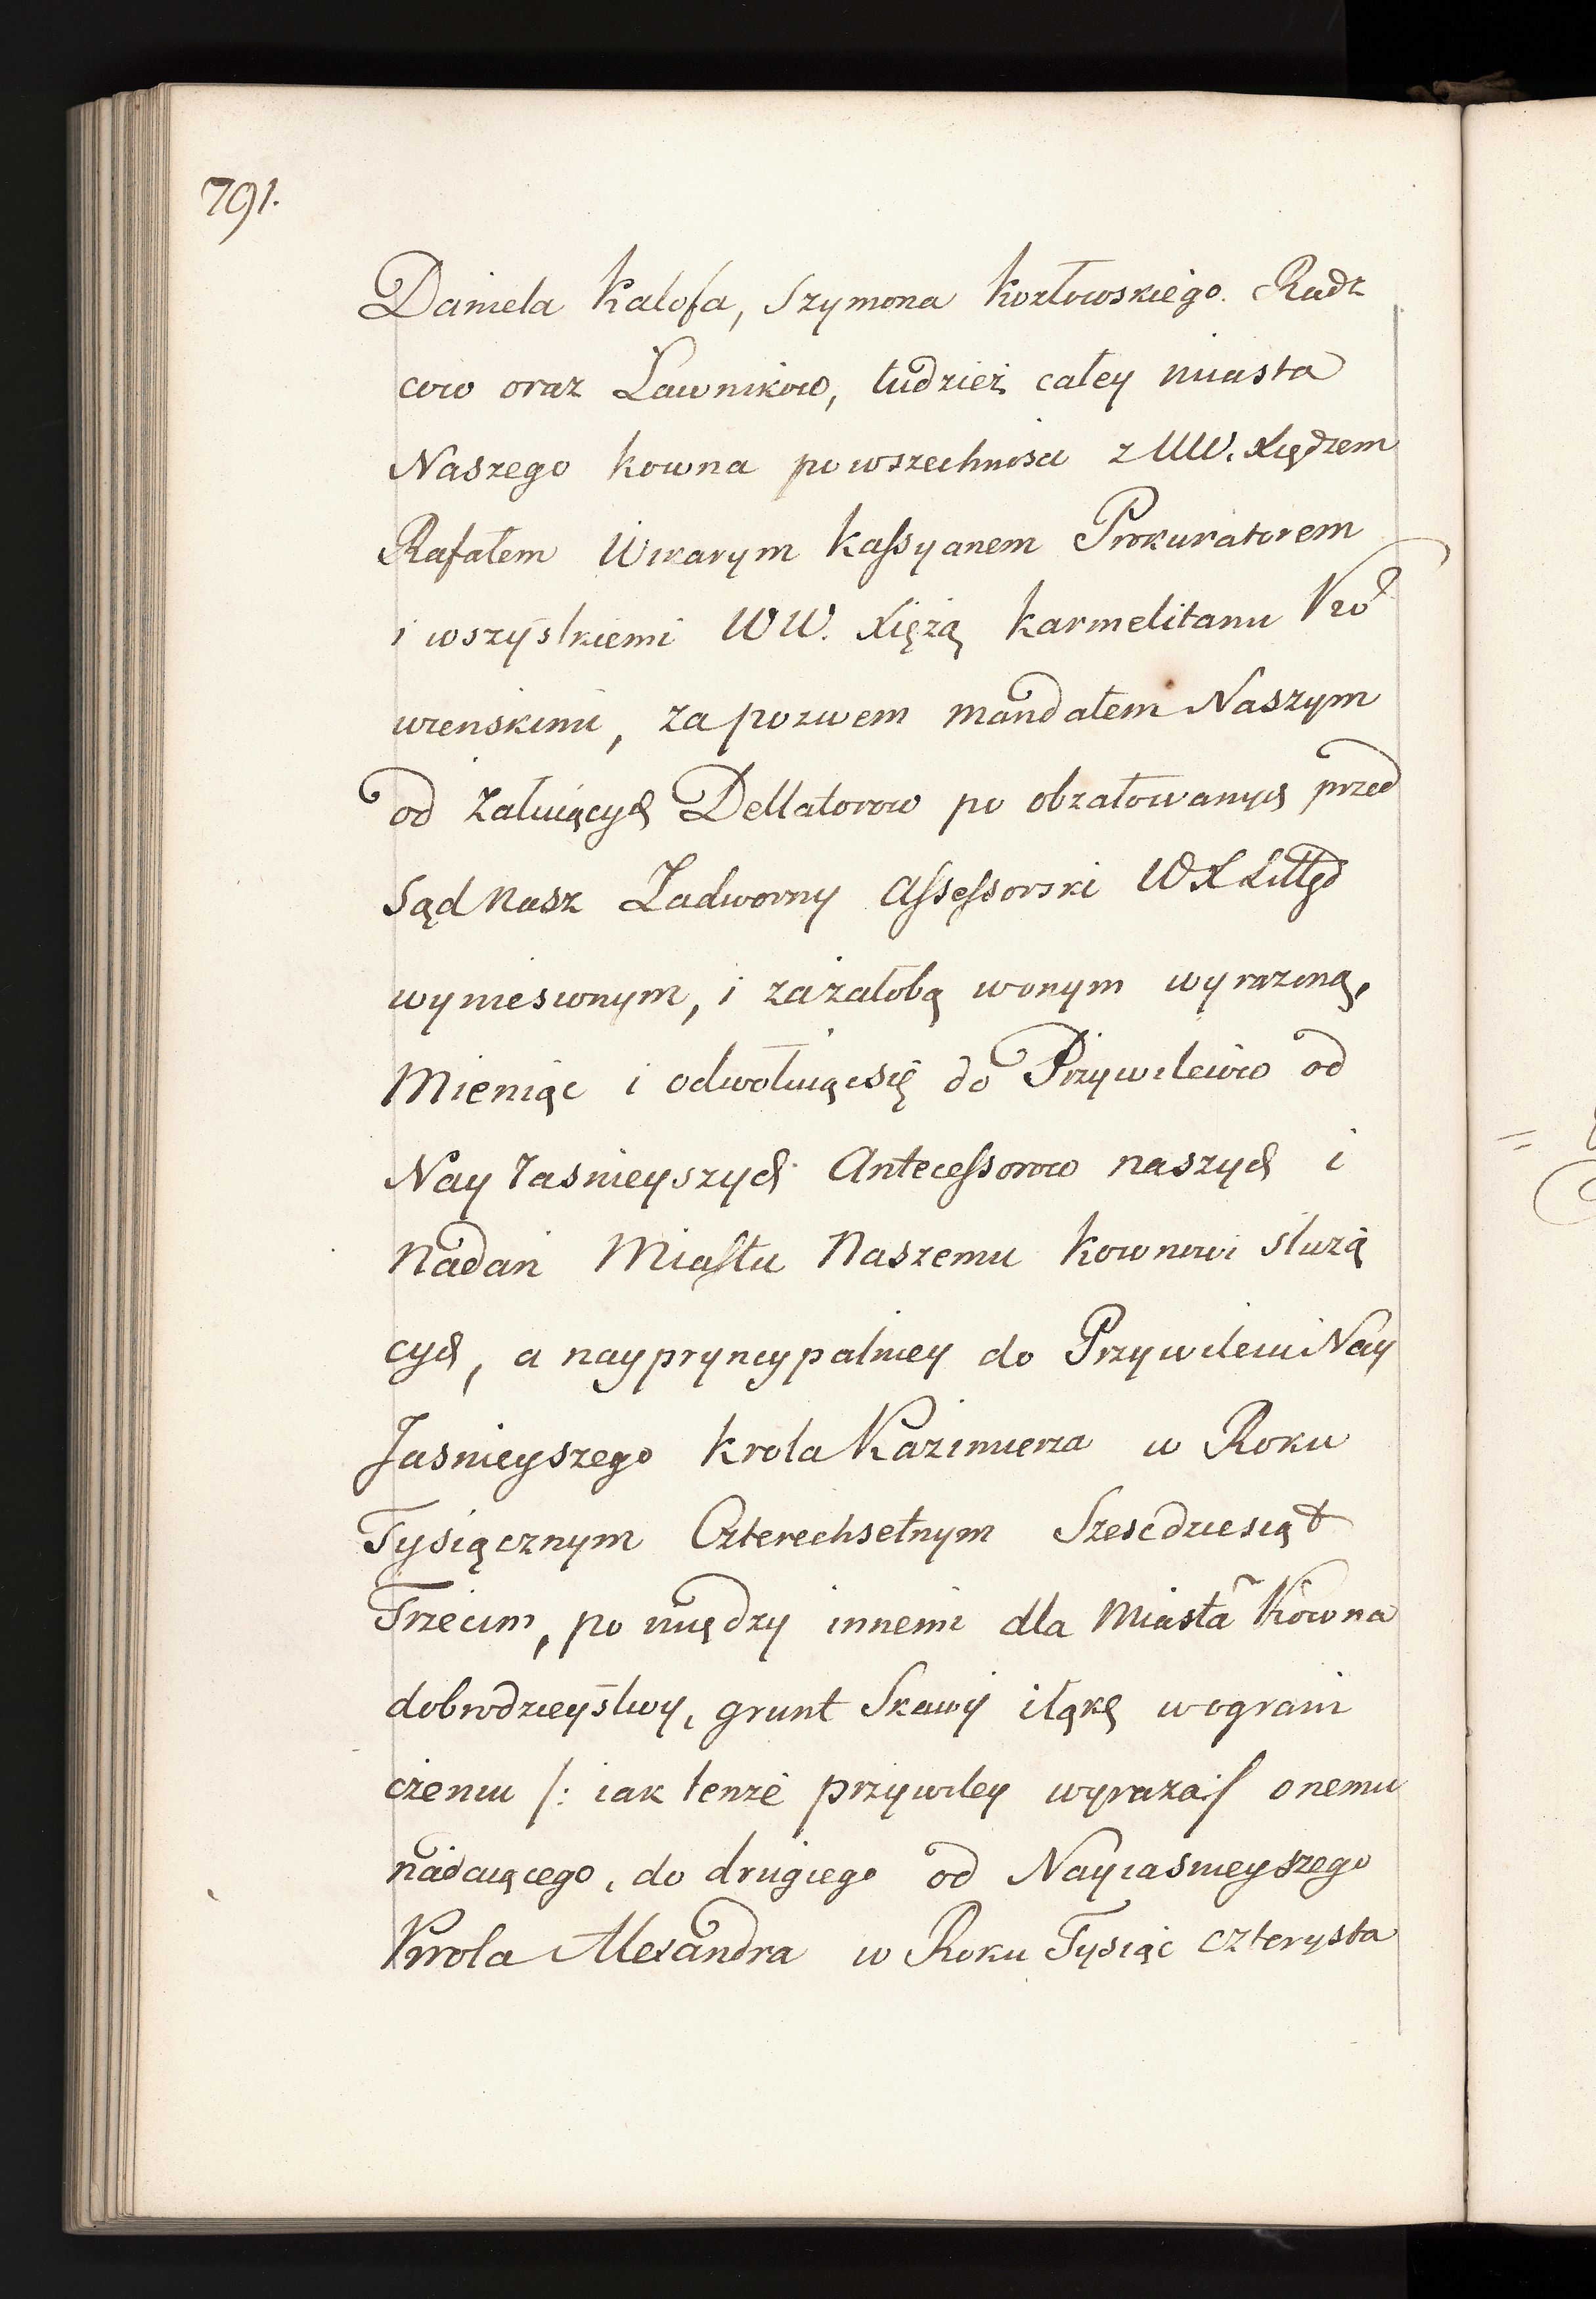 791.
Daniela Kalofa, Szymona Kozłowskiego. Radz
cow oraz Ławnikow, tudzież całey miasta
Naszego Kowna powszechności z WW. Xiędzem
Rafałem Wikarym Kassyanem Prokuratorem
i wszystkiemi WW. Xiężą Karmelitanu Ko
wienskimi, za pozwem mandatem Naszym
od Załuiących Dellatorow po obżałowanych przed
Sąd Nasz Zadworny Assessorski WX Littgo
wyniesionym, i zażałobą wonym wyrazoną,
Mieniąc i odwołuiącsię do Przywileiow od
Nay Jasnieyszych Antecessorow naszych i
Nadań Miastu Naszemu Kownowi służą
cych, a naypryncypalniey do Przywileiu Nay
Jasnieyszego Krola Kazimierza w Roku
Tysiącznym Czterechsetnym Szescdziesiąt
Trzecim, po między innemi dla Miasta Kowna
dobrodzieystwy, grunt Skawy iłąkę wograni
czeniu /: iak tenże przywiley wyraża :/ onemu
nadaiącego, do drugiego od Nayiasnieyszego
Krola Alexandra w Roku Tysiąc czterysta